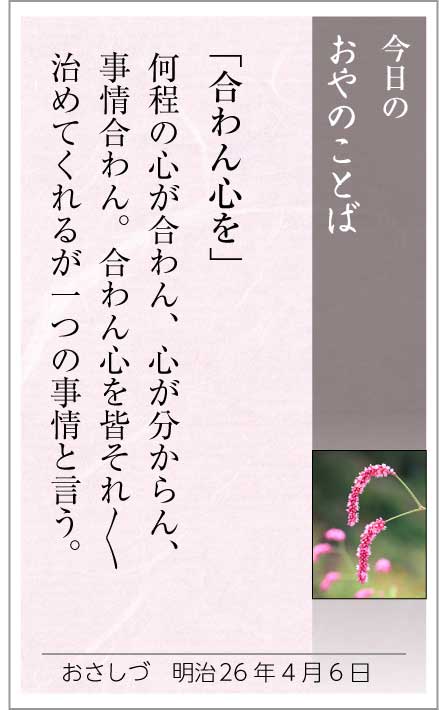 今日の
おやのことば
「合わん心を」
何程の心が合わん、心が分からん、
事情合わん。合わん心を皆それ〳〵
治めてくれるが一つの事情と言う。
おさしづ　明治26年4月6日